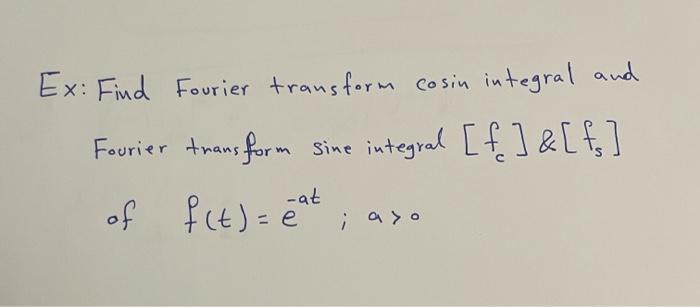 Ex: Find Fourier transform cosin integral and
Fourier transform sine integral [f_c] & [f_s]
of f(t) = e^{-at} ; a > 0